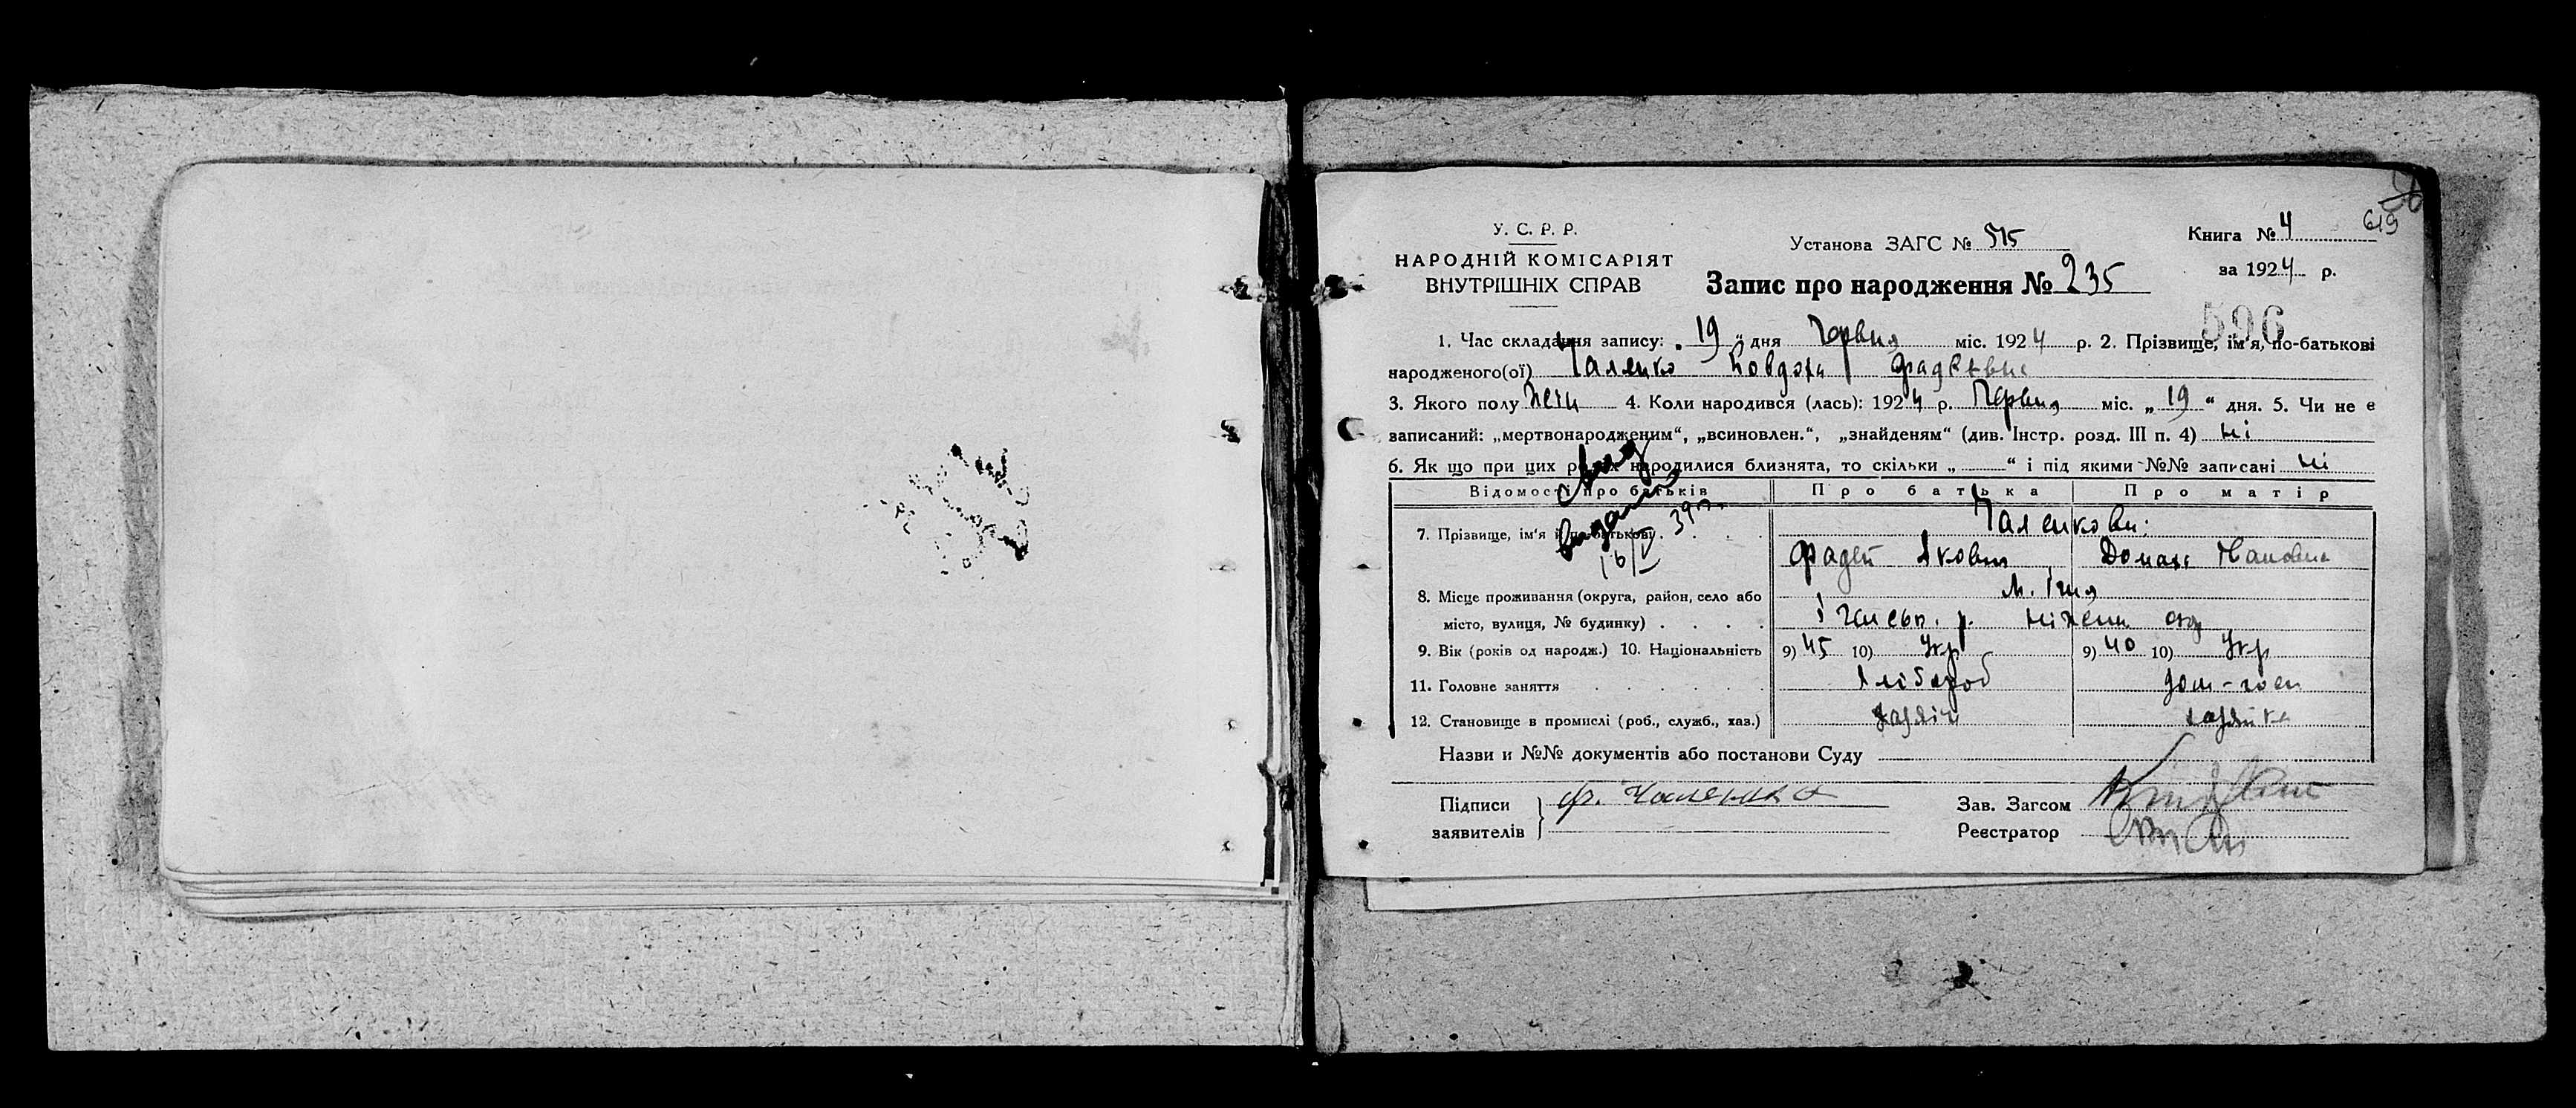 619
У. С. Р. Р.
НАРОДНІЙ КОМІСАРІЯТ
ВНУТРІШНІХ СПРАВ
Установа ЗАГС № 515
Книга № 4
за 1924 р.
Запис про народження № 235
596
1. Час складання запису: „ 19 “ дня Червня міс. 1924 р. 2. Прізвище, ім'я, по-батькові
народженого(ої) Чаленко Фадеевна
3. Якого полу 4. Коли народився (лась): 1924 р. Червня міс. „ 19 “ дня. 5. Чи не є
записаний: „мертвонародженим“, „всиновлен.“, „знайденям“ (див. Інстр. розд. III п. 4) ні
6. Як що при цих родах народилися близнята, то скільки „ “ і під якими №№ записані ні
Відомості про батьків Про батька Про матір
7. Прізвище, ім'я й по-батькові . . . . Чаленкови:
Фадей Якович Домаха
8. Місце проживання (округа, район, село або М. Ічня
місто, вулиця, № будинку) . . . . Ічнянськ. р. Ніжен. окр
9. Вік (років од народж.) 10. Національність 9) 45 10) Укр 9) 40 10) Укр
11. Головне заняття . . . . . Хлібороб дом-хоз
12. Становище в промислі (роб., служб., хаз.) хазяін хазяйка
Назви и №№ документів або постанови Суду
Підписи
заявителів
Ф. Чаленко
Зав. Загсом
Реєстратор